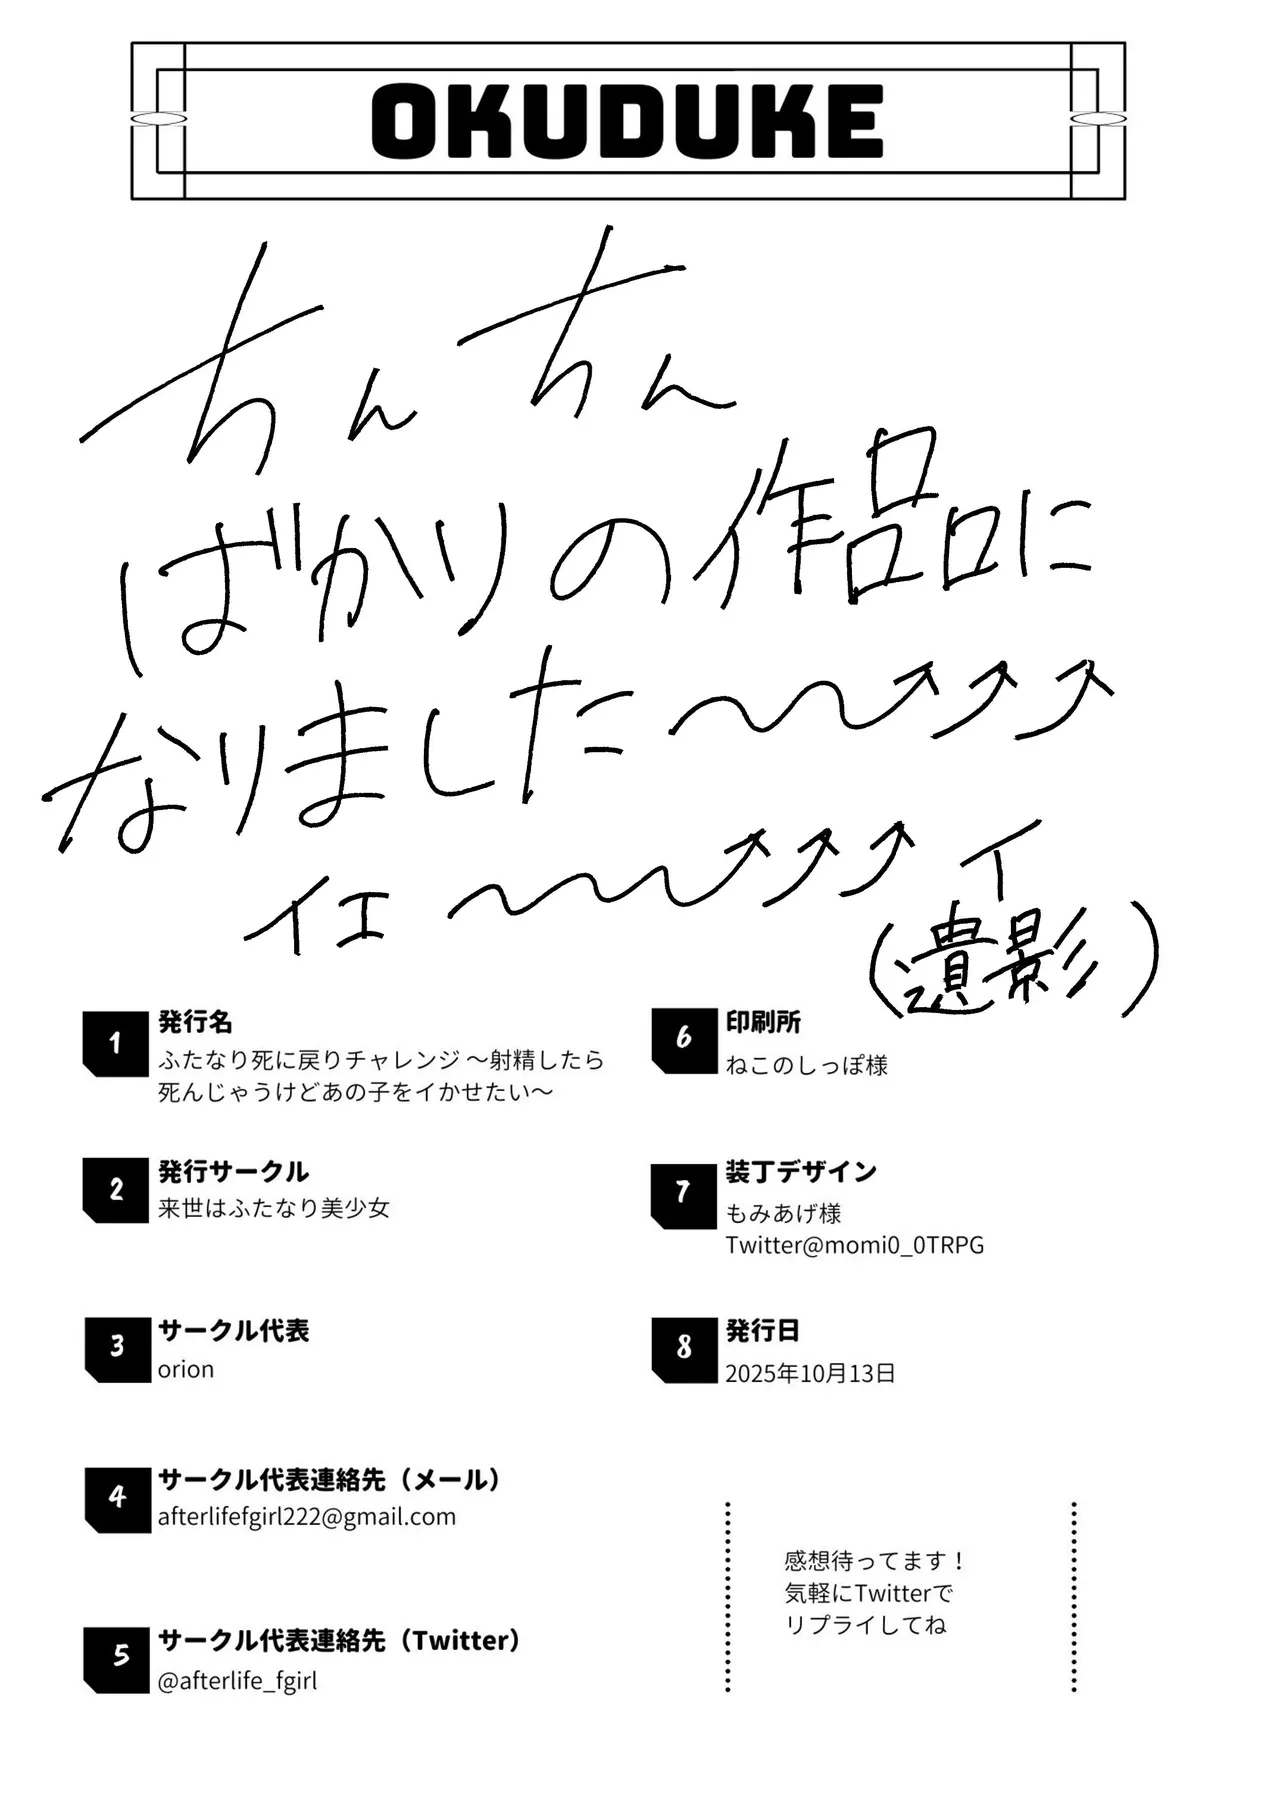 OKUDUKE
ちんちん
ばかりの作品に
なりました〜〜↗↗↗
イエ〜〜〜↗↗↗イ
(遺影)
1
発行名
ふたなり死に戻りチャレンジ ～射精したら
死んじゃうけどあの子をイかせたい～
2
発行サークル
来世はふたなり美少女
3
サークル代表
orion
4
サークル代表連絡先（メール）
afterlifefgirl222@gmail.com
5
サークル代表連絡先（Twitter）
@afterlife_fgirl
6
印刷所
ねこのしっぽ様
7
装丁デザイン
もみあげ様
Twitter@momi0_0TRPG
8
発行日
2025年10月13日
感想待ってます！
気軽にTwitterで
リプライしてね